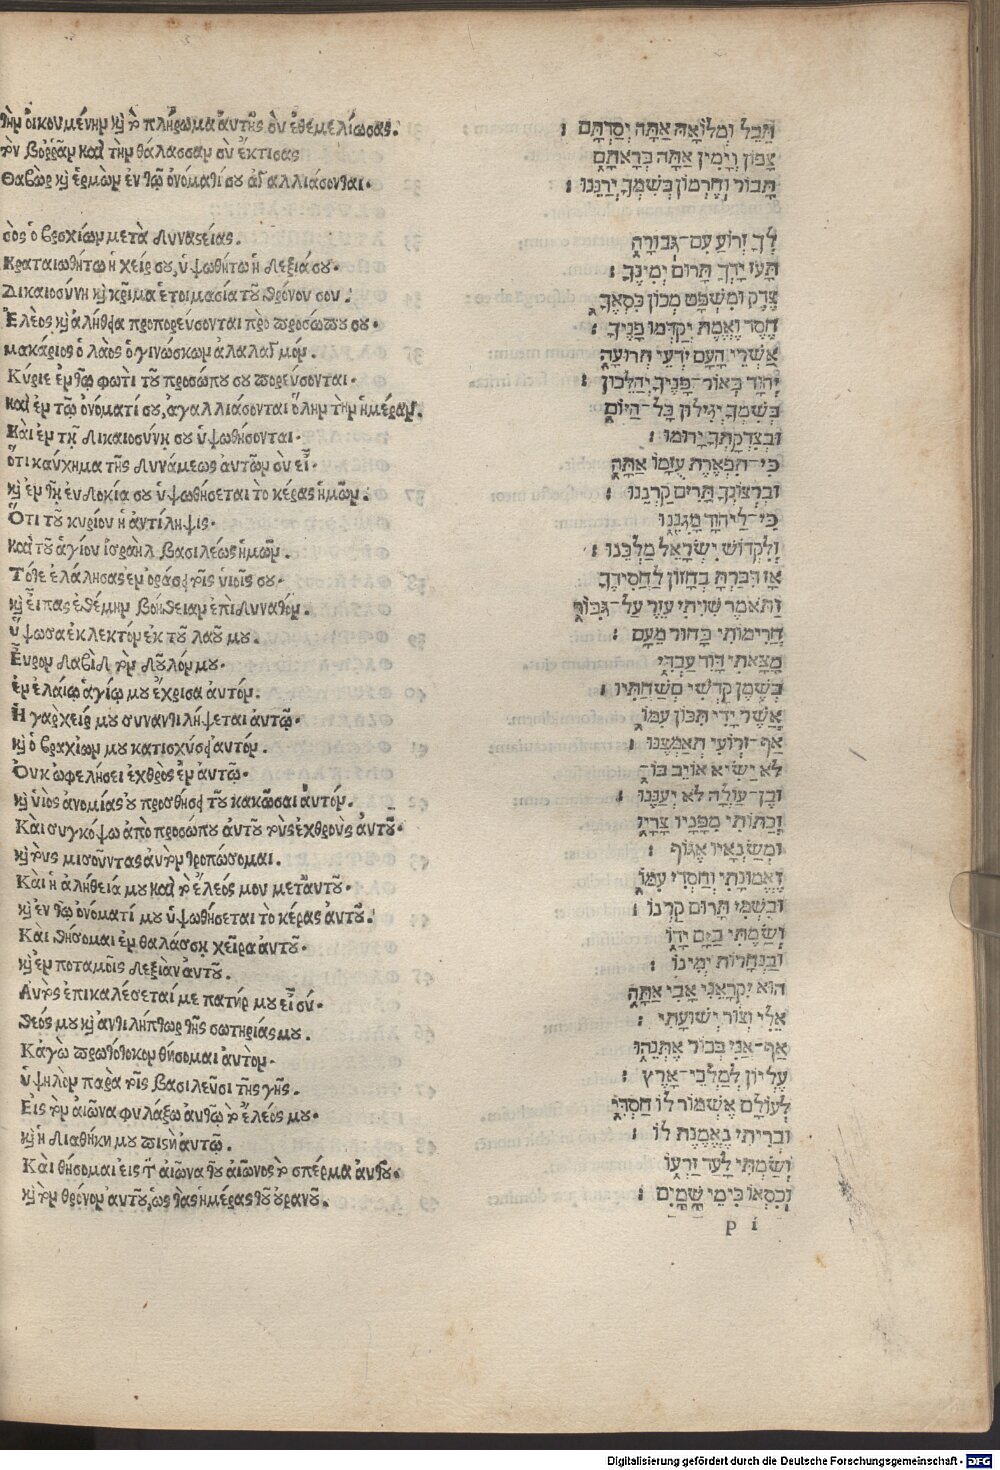 τὴν ὀικουμένην κỳ τὸ πλήρωμα ἀυτῆς σὺ ἐθεμελίωσας.
τὸν βοῤῥᾶν καὶ τὴν θάλασσαν σὺ ἔκτισας
Θαβὼρ κỳ ἑρμὼν ἐν τῷ ὀνόματί σου ἀγαλλιάσονται.
σὸς ὁ βραχίων μετὰ δυναστείας.
Κραταιωθήτω ἡ χείρ σου, ὑψωθήτω ἡ δεξιά σου.
Δικαιοσύνη κỳ κρῖμα ἑτοιμασία τοῦ θρόνου σου.
Ἔλεος κỳ ἀλήθεια προπορεύσονται πρὸ προσώπου σου.
μακάριος ὁ λαὸς ὁ γινώσκων ἀλαλαγμόν.
Κύριε ἐν τῷ φωτὶ τοῦ προσώπου σου πορεύσονται.
καὶ ἐν τῷ ὀνόματί σου, ἀγαλλιάσονται ὅλην τὴν ἡμέραν.
Καὶ ἐν τῇ δικαιοσύνῃ σου ὑψωθήσονται.
ὅτι καύχημα τῆς δυνάμεως αὐτῶν σὺ εἶ.
κỳ ἐν τῇ ἐυδοκίᾳ σου ὑψωθήσεται τὸ κέρας ἡμῶν.
Ὅτι τοῦ κυρίου ἡ ἀντίληψις.
καὶ τοῦ ἁγίου ἰσραὴλ βασιλέως ἡμῶν.
Τότε ἐλάλησας ἐν ὁράσει τοῖς υἱοῖς σου.
κỳ εἶπας ἐθέμην βοήθειαν ἐπὶ δυνατόν.
ὕψωσα ἐκλεκτὸν ἐκ τοῦ λαοῦ μου.
Ἕυρον δαβὶδ τὸν δοῦλόν μου.
ἐν ἐλαίῳ ἁγίῳ μου ἔχρισα ἀυτόν.
Ἡ γὰρ χείρ μου συναντιλήψεται ἀυτῷ.
κỳ ὁ βραχίων μου κατισχύσει ἀυτόν.
Ὀυκ ὠφελήσει ἐχθρὸς ἐν ἀυτῷ.
κỳ ὑιὸς ἀνομίας οὐ προσθήσει τοῦ κακῶσαι ἀυτόν.
Καὶ συγκόψω ἀπὸ προσώπου ἀυτοῦ τοὺς ἐχθροὺς ἀυτοῦ.
κỳ τοὺς μισοῦντας ἀυτὸν τροπώσομαι.
Καὶ ἡ ἀλήθειά μου καὶ τὸ ἔλεός μου μετ᾽ ἀυτοῦ.
κỳ ἐν τῷ ὀνόματί μου ὑψωθήσεται τὸ κέρας ἀυτοῦ.
Καὶ θήσομαι ἐν θαλάσσῃ χεῖρα ἀυτοῦ.
κỳ ἐν ποταμοῖς δεξιὰν ἀυτοῦ.
Αυτὸς ἐπικαλέσεταί με πατήρ μου εἶ σύ.
θεός μου κỳ ἀντιλήπτωρ τῆς σωτηρίας μου.
Κἀγὼ πρωτότοκον θήσομαι ἀυτὸν.
ὑψηλὸν παρὰ τοῖς βασιλεῦσι τῆς γῆς.
Εἰς τὸν αἰῶνα φυλάξω ἀυτῷ τὸ ἔλεός μου.
κỳ ἡ διαθήκη μου πιστὴ ἀυτῷ.
Καὶ θήσομαι εἰς τὸν αἰῶνα τοῦ αἰῶνος τὸ σπέρμα ἀυτοῦ.
κỳ τὸν θρόνον ἀυτοῦ, ὡς τὰς ἡμέρας τοῦ οὐρανοῦ.
תֵּבֵל וּמְלוֹאָהּ אַתָּה יְסַדְתָּם :
צָפוֹן וְיָמִין אַתָּה בְרָאתָם
תָּבוֹר וְחֶרְמוֹן בְּשִׁמְךָ יְרַנֵּנוּ :
לְךָ זְרוֹעַ עִם־גְּבוּרָה
תָּעֹז יָדְךָ תָּרוּם יְמִינֶךָ :
צֶדֶק וּמִשְׁפָּט מְכוֹן כִּסְאֶךָ
חֶסֶד וֶאֱמֶת יְקַדְּמוּ פָנֶיךָ :
אַשְׁרֵי הָעָם יֹדְעֵי תְרוּעָה
יְהוָה בְּאוֹר־פָּנֶיךָ יְהַלֵּכוּן :
בְּשִׁמְךָ יְגִילוּן כָּל־הַיּוֹם
וּבְצִדְקָתְךָ יָרוּמוּ :
כִּי־תִפְאֶרֶת עֻזָּמוֹ אַתָּה
וּבִרְצוֹנְךָ תָּרִים קַרְנֵנוּ :
כִּי־לַיהוָה מָגִנֵּנוּ
וְלִקְדוֹשׁ יִשְׂרָאֵל מַלְכֵּנוּ :
אָז דִּבַּרְתָּ בְחָזוֹן לַחֲסִידֶיךָ
וַתֹּאמֶר שִׁוִּיתִי עֵזֶר עַל־גִּבּוֹר
הֲרִימוֹתִי בָחוּר מֵעָם :
מָצָאתִי דָּוִד עַבְדִּי
בְּשֶׁמֶן קָדְשִׁי מְשַׁחְתִּיו :
אֲשֶׁר יָדִי תִּכּוֹן עִמּוֹ
אַף־זְרוֹעִי תְאַמְּצֶנּוּ :
לֹא יַשִּׁיא אוֹיֵב בּוֹ
וּבֶן־עַוְלָה לֹא יְעַנֶּנּוּ :
וְכַתּוֹתִי מִפָּנָיו צָרָיו
וּמְשַׂנְאָיו אֶגּוֹף :
וֶאֱמוּנָתִי וְחַסְדִּי עִמּוֹ
וּבִשְׁמִי תָּרוּם קַרְנוֹ :
וְשַׂמְתִּי בַיָּם יָדוֹ
וּבַנְּהָרוֹת יְמִינוֹ :
הוּא יִקְרָאֵנִי אָבִי אַתָּה
אֵלִי וְצוּר יְשׁוּעָתִי :
אַף־אָנִי בְּכוֹר אֶתְּנֵהוּ
עֶלְיוֹן לְמַלְכֵי־אָרֶץ :
לְעוֹלָם אֶשְׁמוֹר לוֹ חַסְדִּי
וּבְרִיתִי נֶאֱמֶנֶת לוֹ :
וְשַׂמְתִּי לָעַד זַרְעוֹ
וְכִסְאוֹ כִּימֵי שָׁמָיִם :
p i
Digitalisierung gefördert durch die Deutsche Forschungsgemeinschaft - DFG